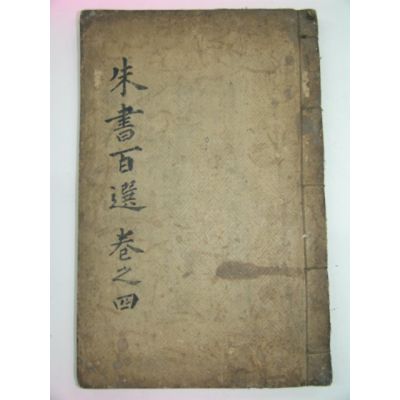 朱書百選 卷之四